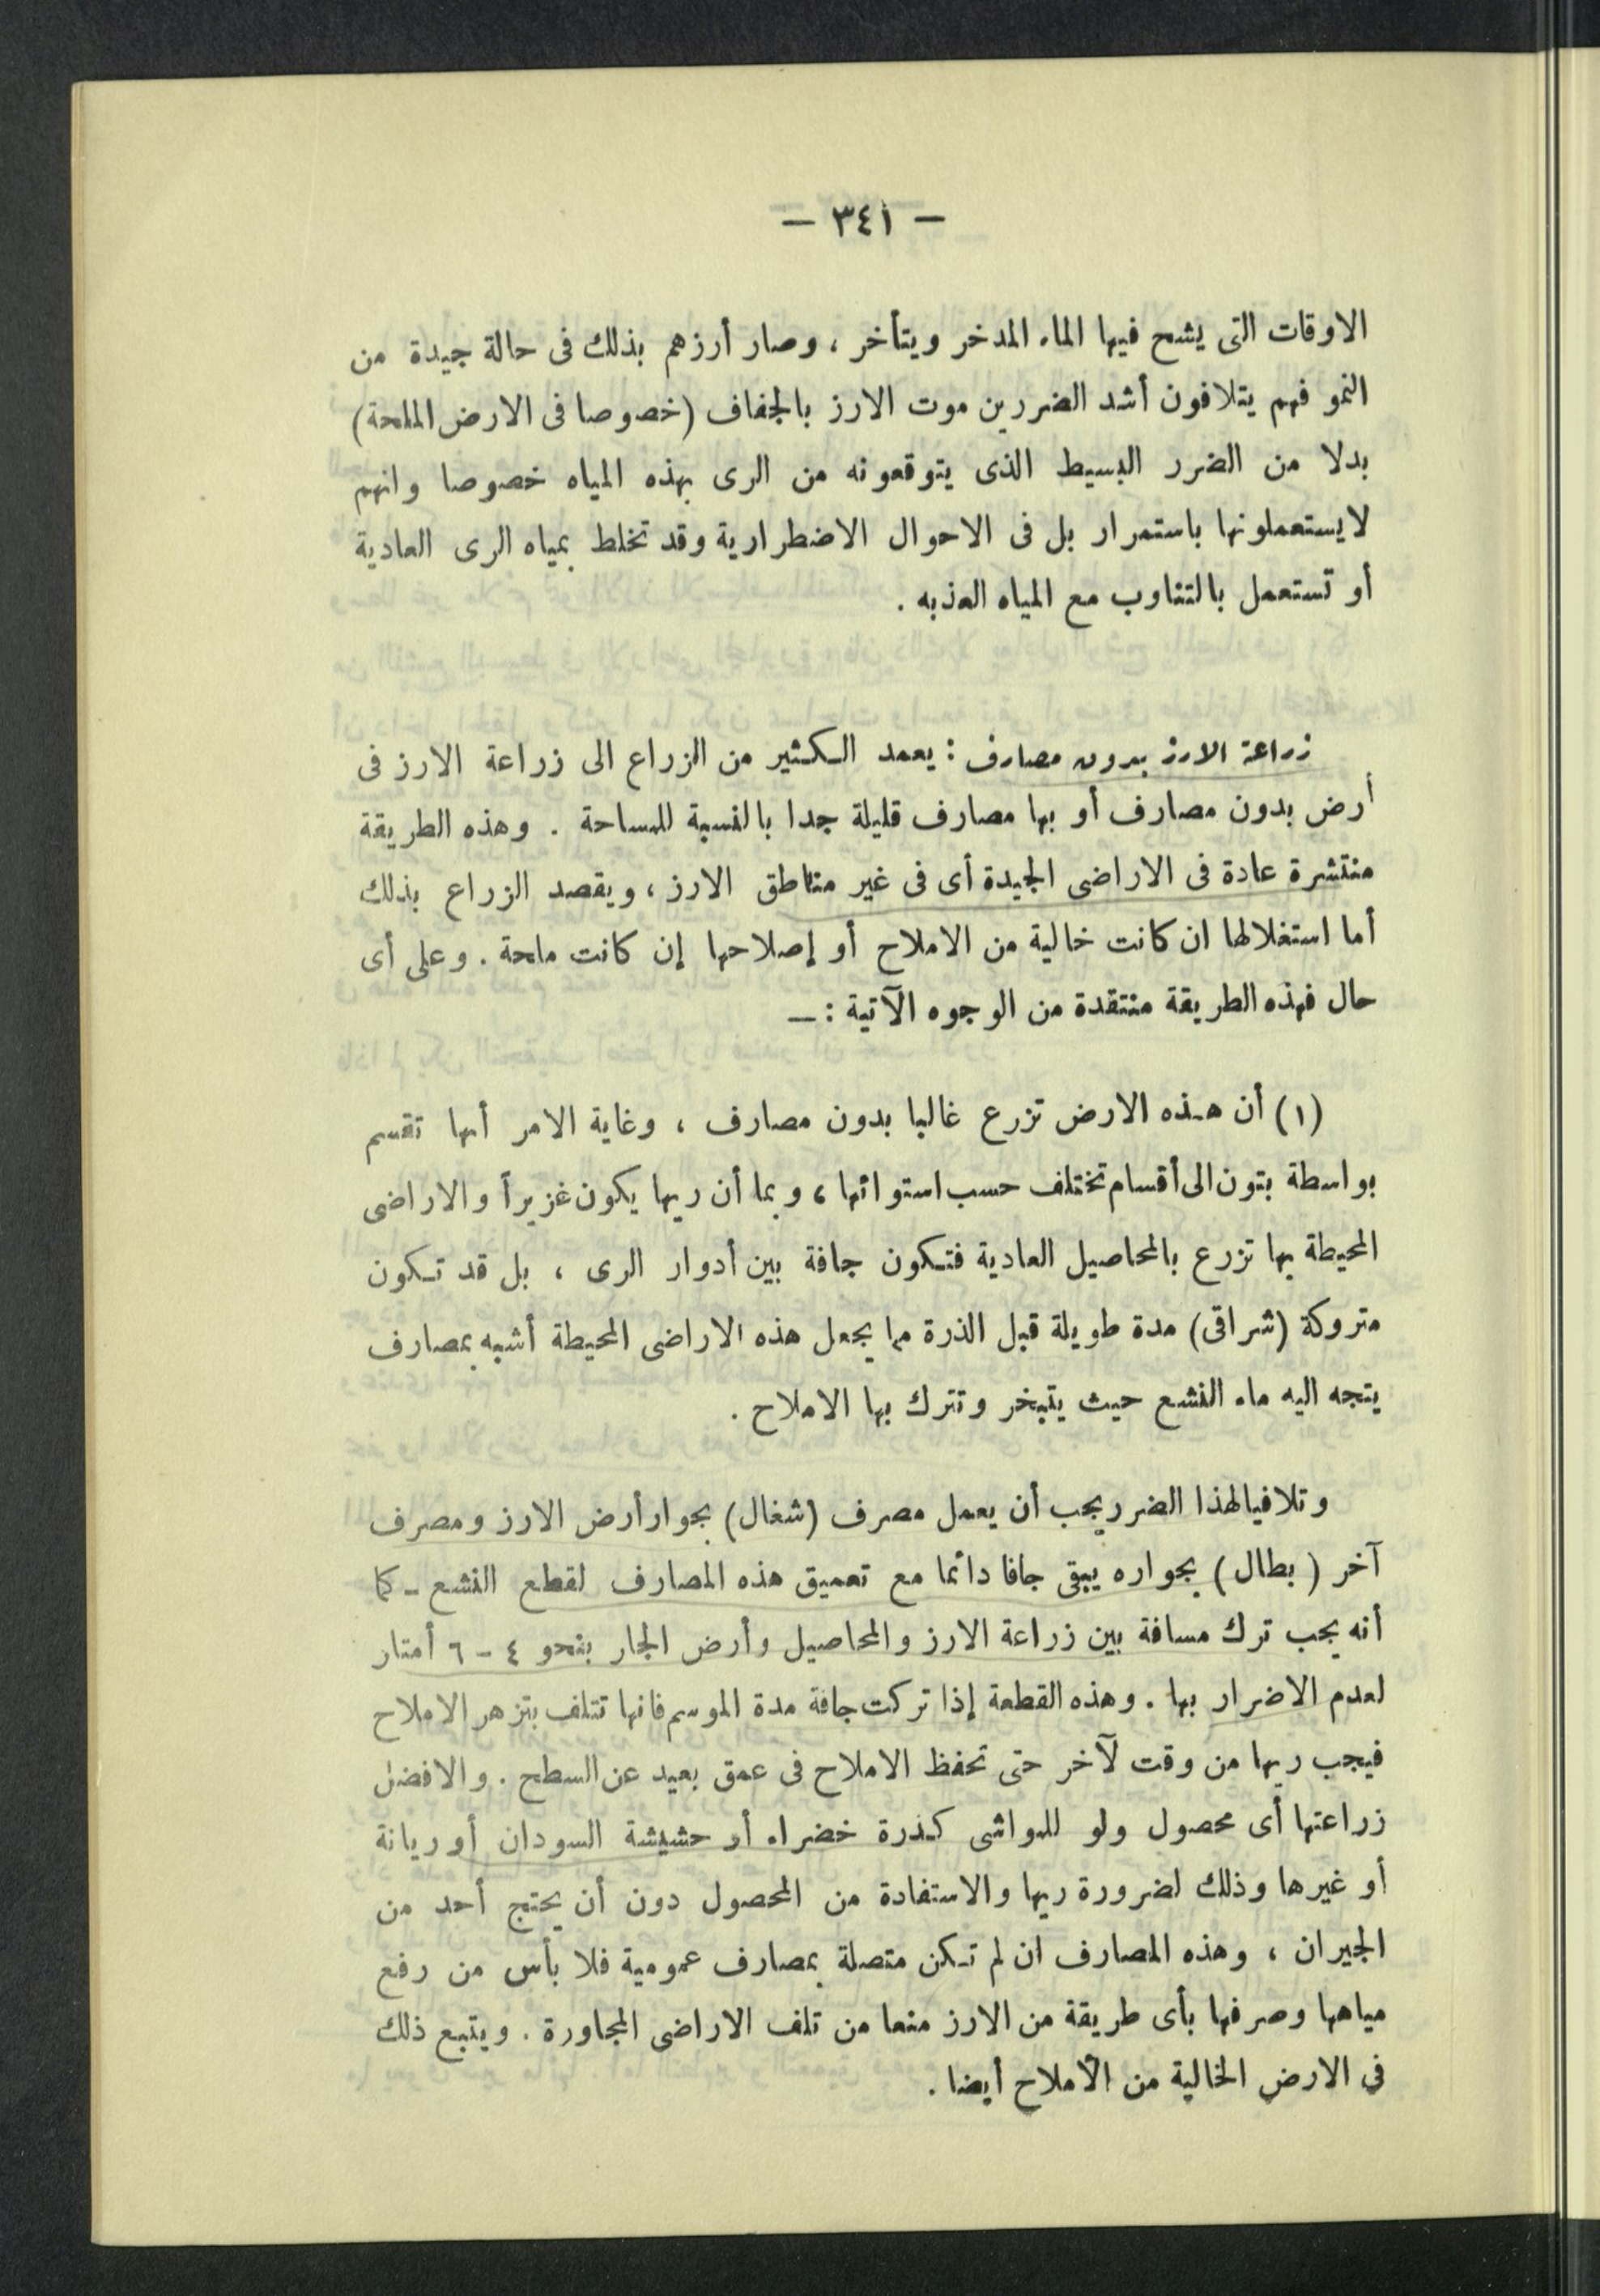 — ٣٤١ —
الاوقات التى يشح فيها الماء المدخر ويتأخر ، وصار أرزهم بذلك فى حالة جيدة من
النمو فهم يتلافون أشد الضررين موت الارز بالجفاف (خصوصا فى الارض الملحة)
بدلا من الضرر البسيط الذى يتوقعونه من الرى بهذه المياه خصوصا وانهم
لا يستعملونها باستمرار بل فى الاحوال الاضطرارية وقد تخلط بمياه الرى العادية
أو تستعمل بالتناوب مع المياه العذبه .
زراعة الارز بدون مصارف : يعمد الكثير من الزراع الى زراعة الارز فى
أرض بدون مصارف أو بها مصارف قليلة جدا بالنسبة للمساحة . وهذه الطريقة
منتشرة عادة فى الاراضى الجيدة أى فى غير مناطق الارز ، ويقصد الزراع بذلك
أما استغلالها ان كانت خالية من الاملاح أو إصلاحها إن كانت ملحة . وعلى أى
حال فهذه الطريقة منتقدة من الوجوه الآتية : —
(١) أن هذه الارض تزرع غالبا بدون مصارف ، وغاية الامر أنها تقسم
بواسطة بتون الى أقسام تختلف حسب استوائها ، وبما أن ريها يكون غزيراً والاراضى
المحيطة بها تزرع بالمحاصيل العادية فتكون جافة بين أدوار الرى ، بل قد تكون
متروكة (شراقى) مدة طويلة قبل الذرة مما يجعل هذه الاراضى المحيطة أشبه بمصارف
يتجه اليه ماء النشع حيث يتبخر وتترك بها الاملاح .
وتلافيا لهذا الضرر يجب أن يعمل مصرف (شغال) بجوار أرض الارز ومصرف
آخر (بطال) بجواره يبقى جافا دائما مع تعميق هذه المصارف لقطع النشع - كما
أنه يجب ترك مسافة بين زراعة الارز والمحاصيل وأرض الجار بنحو ٤ - ٦ أمتار
لعدم الاضرار بها . وهذه القطعة إذا تركت جافة مدة الموسم فانها تتلف بتزهر الاملاح
فيجب ريها من وقت لآخر حتى تحفظ الاملاح فى عمق بعيد عن السطح . والافضل
زراعتها أى محصول ولو للمواشى كذرة خضراء أو حشيشة السودان أو ريانة
أو غيرها وذلك لضرورة ريها والاستفادة من المحصول دون أن يحتج أحد من
الجيران ، وهذه المصارف ان لم تكن متصلة بمصارف عمومية فلا بأس من رفع
مياهها وصرفها بأى طريقة من الارز منعا من تلف الاراضى المجاورة . ويتبع ذلك
في الارض الخالية من الأملاح أيضا .